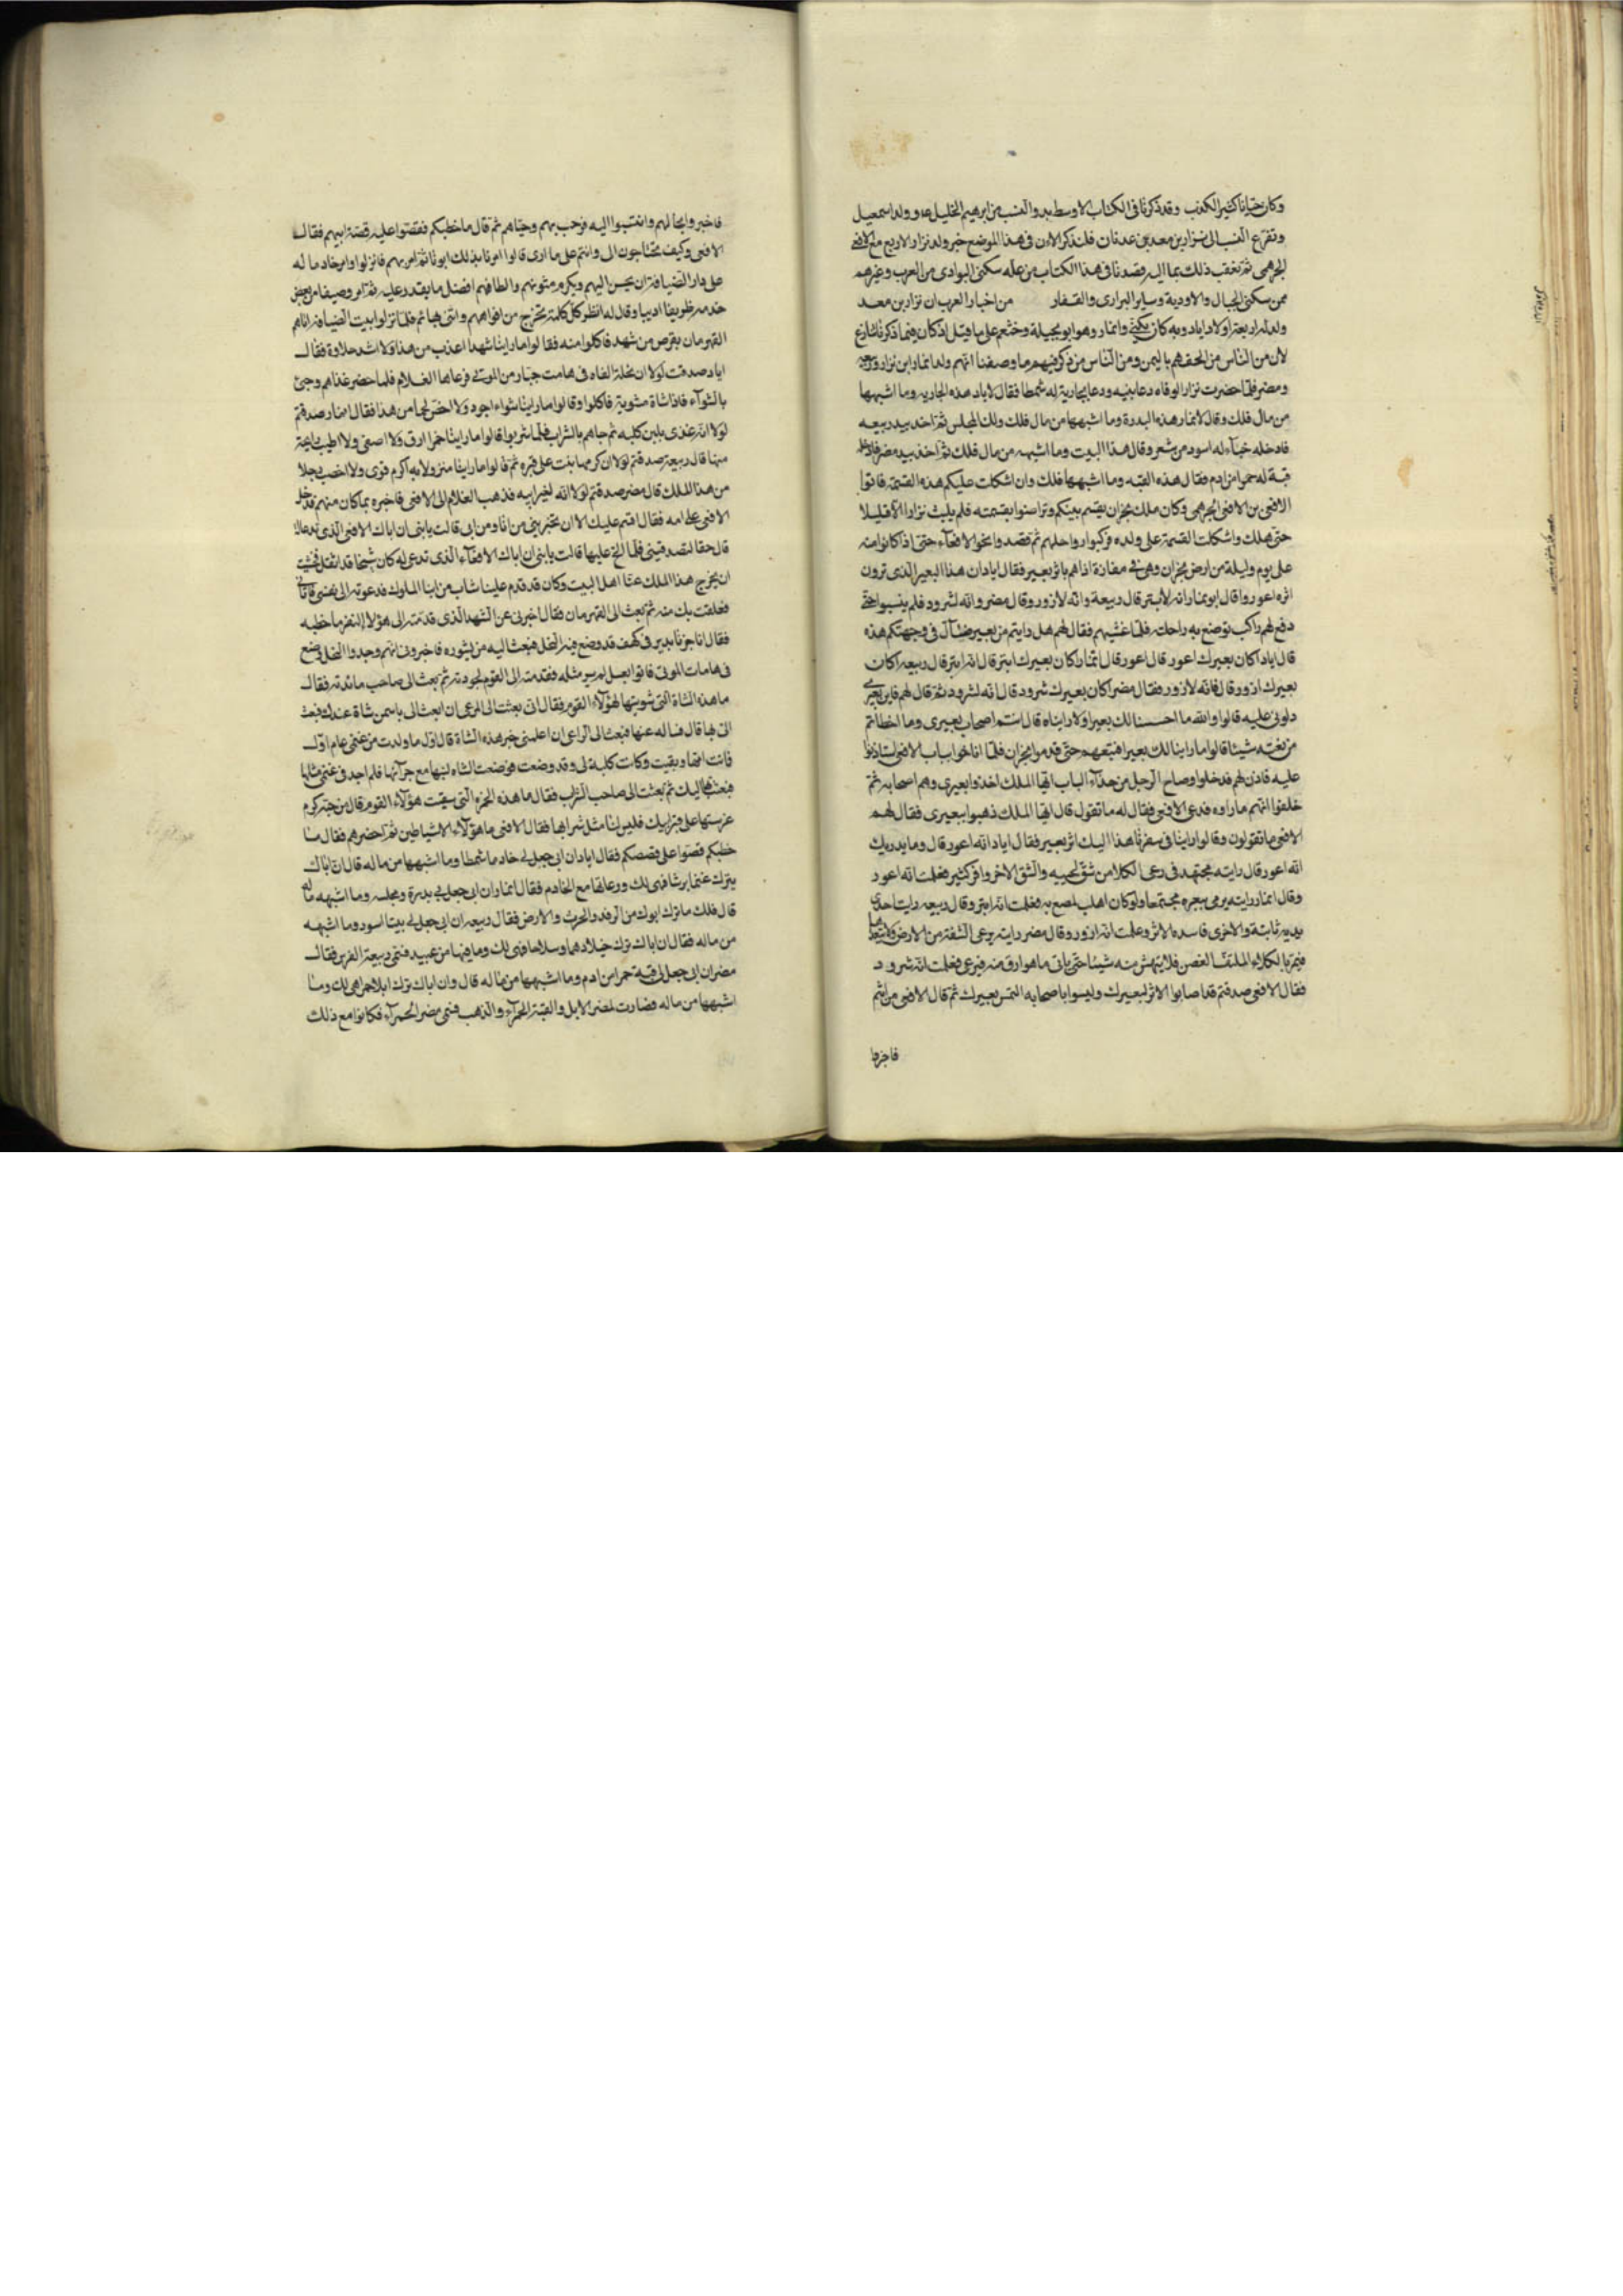 وكان ختانا كثير الكذب وقد ذكرنا فى الكتاب الاوسط بدو النسب من ابرهيم الخليل عم وولد اسمعيل
وتفرع النسب الى نزار بن معد بن عدنان فلنذكر الان فى هذا الموضع خبر ولد نزار الاربع مع الافعى
الجرهمى ثم نعقب ذلك بما اليه قصدنا فى هذا الكتاب من علة سكنى البوادى من العرب وغيرهم
ممن سكنى الجبال والاودية وساير البرارى والقفار من اخبار العرب ان نزار بن معد
ولد له اربعة اولاد اياد وبه كان يكنى وانمار وهو ابو بجيلة وخثعم على ما قيل اذ كان فيما ذكرنا تنازع
لان من الناس من الحقهم باليمن ومن الناس من ذكر فيهم ما وصفنا انهم ولد انمار ابن نزار وربيعه
ومضر فلما حضرت نزار الوفاه دعا بنيه ودعا بجارية له شمطا فقال لاياد هذه الجاريه وما اشبهها
من مال فلك وقال لانمار هذه البدرة وما اشبهها من مال فلك ولك المجلس ثم اخذ بيد ربيعه
فادخله خباء له اسود من شعر وقال هذا البيت وما اشبهه من مال فلك ثم اخذ بيد مضر فادخله
قبة له حمرا من ادم فقال هذه القبه وما اشبهها فلك وان اشكلت عليكم هذه القسمة فاتوا
الافعى بن الافعى الجرهمى وكان ملك نجران يقسم بينكم وتراضوا بقسمته فلم يلبث نزار الا قليلا
حتى هلك واشكلت القسمة على ولده فركبوا رواحلهم ثم قصدوا نحو الافعاء حتى اذا كانوا منه
على يوم وليلة من ارض نجران وهى فى مفازة اذا هم باثر بعير فقال اياد ان هذا البعير الذى ترون
اثره اعور وقال ابو نمار انه لابتر قال ربيعة وانه لازور وقال مضر وانه لشرود فلم ينسبوا حتى
دفع لهم راكب توضع به راحلته فلما غشيهم فقال لهم هل رايتم من بعير ضال فى وجهتكم هذه
قال اياد اكان بعيرك اعور قال اعور قال انمار كان بعيرك ابتر قال انه ابتر قال ربيعه اكان
بعيرك ازور قال فانه لازور فقال مضر اكان بعيرك شرود قال انه لشرود ثم قال لهم فاين بعيرى
دلونى عليه قالوا والله ما احسسنا لك بعيرا ولا رايناه قال انتم اصحاب بعيرى وما اخطاتم
من نعته شيئا قالوا ما راينا لك بعيرا فتبعهم حتى قدموا نجران فلما اناخوا بباب الافعى استاذنوا
عليه فاذن لهم فدخلوا وصاح الرجل من حذاء الباب ايها الملك اخذوا بعيرى وهم اصحابه ثم
حلفوا انهم ما راوه فدعى الافعى فقال له ما تقول قال ايها الملك ذهبوا ببعيرى فقال لهم
الافعى ما تقولون وقالوا راينا فى سفرنا هذا اليك اثر بعير فقال اياد انه اعور قال وما يدريك
انه اعور قال رايته مجتهد فى رعى الكلا من شق لحييه والشق الاخر وافر كثير فعلمت انه اعور
وقال انمار رايته يرمى ببعره مجتمعا ولو كان اهلب لمصع به فعلمت انه ابتر وقال ربيعه رايت احدى
يديه ثابتة والاخرى فاسده الاثر وعلمت انه ازور وقال مضر رايته يرعى الشقة من الارض
فيمر بالكلاء الملتف الغصن فلا ينهش منه شيئا حتى ياتى ما هو ارق منه فيرعى فعلمت انه شرود
فقال الافعى صدقتم قد اصابوا الاثر لبعيرك وليسوا باصحابه التمس بعيرك ثم قال الافعى من انتم
فاخبروا
فاخبروا بحالهم وانتسبوا اليه فرحب بهم وحياهم ثم قال ما خطبكم فقصوا عليه قصة ابيهم فقال
الافعى وكيف تحتاجون الى وانتم على ما ارى قالوا امرنا بذلك ابونا ثم امر بهم فانزلوا وامر خادما له
على دار الضيافة ان يحسن اليهم ويكرم مثويهم والطافهم افضل ما يقدر عليه ثم امر وصيفا من بعض
خدمه ظريفا اديبا وقال له انظر كل كلمة تخرج من افواههم واتنى بها ثم فلما نزلوا بيت الضيافة اتاهم
القهرمان بقرص من شهد فاكلوا منه فقالوا ما راينا شهدا اعذب من هذا ولا اشد حلاوة فقال
اياد صدقت لولا ان نحلة القاه فى هامت جبار من الموتى فوعاها الغلام فلما حضر غذاهم وجئ
بالشواء فاذا شاة مشوية فاكلوا وقالوا ما راينا شواء اجود ولا اخص لحما من هذا فقال انمار صدقتم
لولا انه غذى بلبن كلبه ثم جاهم بالشراب فلما شربوا قالوا ما راينا خمرا ارق ولا اصفى ولا اطيب رايحة
منها قال ربيعة صدقتم لولا ان كرمها نبت على قبره ثم قالوا ما راينا منزولا به اكرم قرى ولا اخصب رجلا
من هذا الملك قال مضر صدقتم لولا انه لغير ابيه فذهب الغلام الى الافعى فاخبره بما كان منهم فدخل
الافعى على امه فقال اقسم عليك الا ان تخبرينى من انا ومن ابى قالت يا بنى ان اباك الافعى الذى تدعا له
قال حقا لتصدقينى فلما الح عليها قالت يا بنى ان اباك الافعاء الذى تدعى له كان شيخا قد اثقل فخشيت
ان يخرج هذا الملك عنا اهل البيت وكان قد قدم علينا شاب من ابنا الملوك فدعوته الى نفسى فاتانى
فعلقت بك منه ثم بعث الى القهرمان فقال اخبرنى عن الشهد الذى قدمته الى هؤلاء النفر ما خطبه
فقال انا خبرنا بدير فى كهف قد وضع فيه النحل فبعث اليه من يشوره فاخبرونى انهم وجدوا النحل وضع
فى هامات الموتى فاتوا بعسل لم ير مثله فقدمته الى القوم لجودته ثم بعث الى صاحب مائدته فقال
ما هذه الشاة التى شويتها لهؤلاء القوم فقال انى بعثت الى الراعى ان ابعث الى باسمن شاة عندك فبعث
الى بها قال فساله عنها فبعث الى الراعى ان اعلمنى خبر هذه الشاة قال اول ما ولدت من غنمى عام اول
فماتت امها وبقيت وكانت كلبة لى وقد وضعت فرضعت الشاه لبنها مع جرائها فلم اجد فى غنمى مثلها
فبعثت بها اليك ثم بعث الى صاحب الشراب فقال ما هذه الخمره التى سقيت هؤلاء القوم قال من حبة كرم
غرستها على قبر ابيك فليس لنا مثل شرابها فقال الافعى ما هؤلاء الا شياطين ثم احضرهم فقال ما
خطبكم قصوا على قصصكم فقال اياد ان ابى جعل لى خادما شمطا وما اشبهها من ماله قال ان اباك
يترك غنما برشا فهى لك ورعاتها مع الخادم فقال انمار ان ابى جعل لى بدرة ومجلسه وما اشبهه من ماله
قال فلك ما ترك ابوك من الرقه والحرث والارض فقال ربيعه ان ابى جعل لى بيتا اسود وما اشبهه
من ماله فقال ان اباك ترك خيلا دهما وسلاحا فهى لك وما فيها من عبيد فسمى ربيعة الفرس فقال
مضر ان ابى جعل لى قبة حمرا من ادم وما اشبهها من ماله قال وان اباك ترك ابلا حمرا هى لك وما
اشبهها من ماله فصارت لمضر الابل والقبة الحمراء والذهب فسمى مضر الحمراء فكانوا مع ذلك